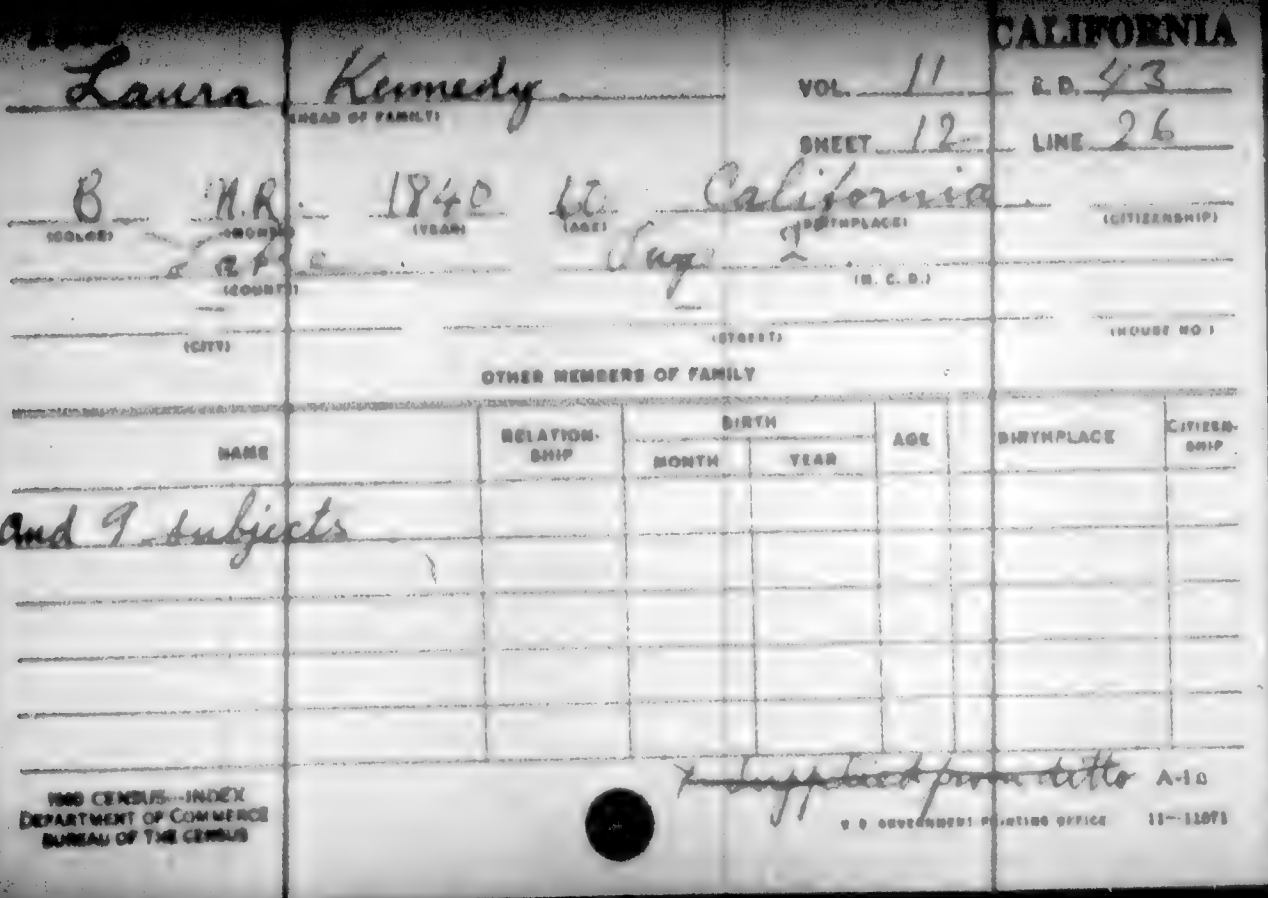 CALIFORNIA
Laura Kennedy VOL. 11 E. D. 43
(HEAD OF FAMILY)
SHEET 12 LINE 26
B N.R. 1840 60 California
(COLOR) (MONTH) (YEAR) (AGE) (BIRTHPLACE) (CITIZENSHIP)
(COUNTY) (M. C. D.)
(CITY) (STREET) (HOUSE NO.)
OTHER MEMBERS OF FAMILY
NAME RELATION-SHIP BIRTH MONTH YEAR AGE BIRTHPLACE CITIZEN-SHIP
and 9 subjects
x Supplied from ditto A-10
1900 CENSUS—INDEX
DEPARTMENT OF COMMERCE
BUREAU OF THE CENSUS
U. S. GOVERNMENT PRINTING OFFICE 11—11071